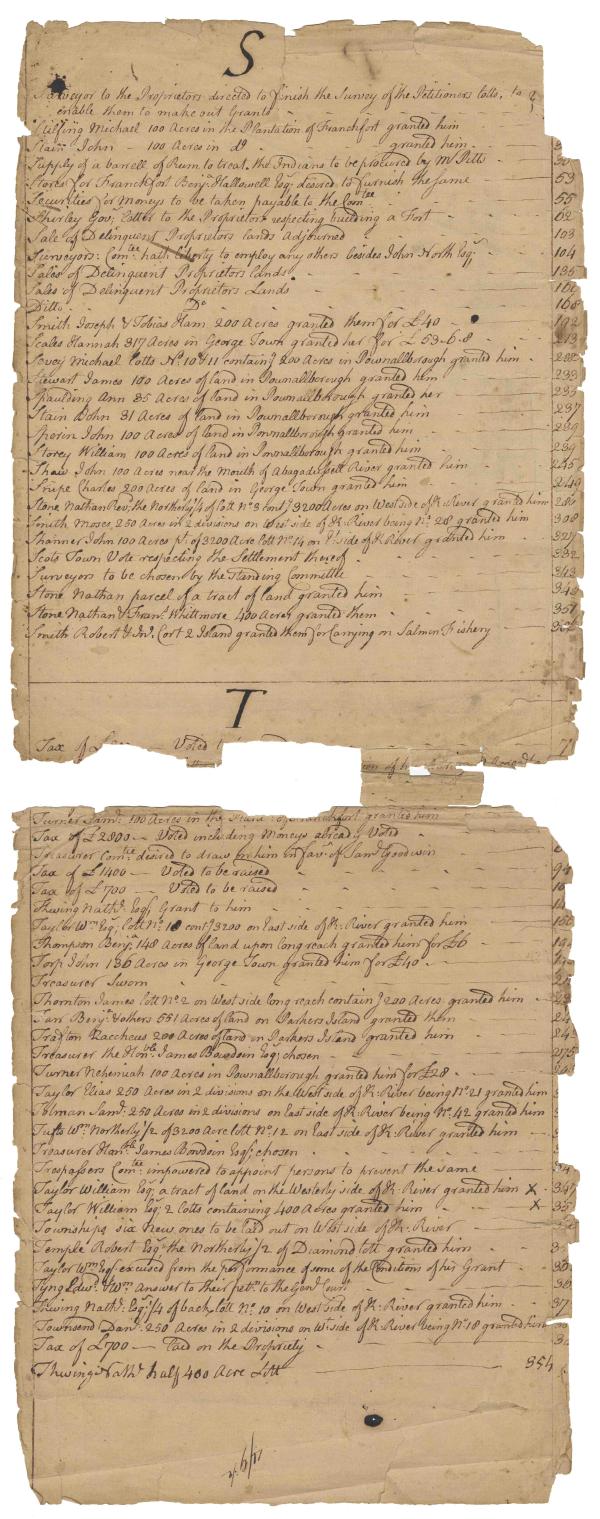 S
Surveyor to the Proprietors directed to finish the Survey of the Petitioners Lotts, to
enable them to make out Grants
Stilfing Michael 100 Acres in the Plantation of Franckfort granted him
Stain John - 100 Acres in do. granted him
Supply of a barrell of Rum to treat the Indians to be procured by Mr Pitts
Stores for Franckfort Benj. Hallowell Esq. desired to furnish the same 53
Securities for Moneys to be taken payable to the Comtee 55
Shirley Gov. letter to the Proprietors respecting building a Fort 62
Sale of Delinquent Proprietors lands Adjourned 103
Surveyors: Comtee hath liberty to employ any others besides John North Esq. 104
Sales of Delinquent Proprietors Lands 135
Sales of Delinquent Proprietors Lands
Ditto Do 168
Smith Joseph & Tobias Ham 200 Acres granted them for £40 192
Scales Hannah 317 Acres in George Town granted her for £53-6-8 213
Sevey Michael Lotts No. 10 & 11 containg 200 Acres in Pownallborough granted him
Stewart James 100 Acres of land in Pownallborough granted him 233
Spaulding Ann 35 Acres of land in Pownallborough granted her
Stain John 31 Acres of land in Pownallborough granted him 237
Sperin John 100 Acres of land in Pownallborough granted him 239
Storey William 100 Acres of land in Pownallborough granted him 239
Shaw John 100 Acres near the Mouth of Abagadussett River granted him 245
Snipe Charles 200 Acres of land in George Town granted him 249
Stone Nathan Revd. the Northerly 1/4 of Lott No. 3 contg. 3200 Acres on West side of K. River granted him 286
Smith Moses 250 Acres in 2 divisions on West side of K. River being No. 28 granted him 308
Shanner John 100 Acres pt. of 3200 Acre Lott No. 14 on Et. side of K. River granted him
Scots Town Vote respecting the Settlement thereof 332
Surveyors to be chosen by the standing Committee 343
Stone Nathan parcel of a tract of land granted him
Stone Nathan & Frans. Whittmore 400 Acres granted them 351
Smith Robert & Jno. Cort 2 Island granted them for Carrying on Salmon Fishery
T
Tax of Voted
Turner Saml. 100 Acres in the granted him
Tax of £2800 — Voted including Moneys already Voted
Treasurer Comtee desired to draw on him in favr. of Saml. Goodwin
Tax of £1400 — Voted to be raised
Tax of £700 — Voted to be raised
Thwing Nathl. Esq. Grant to him
Taylor Wm Esq. Lott No. contg. 3200 on East side of K. River granted him
Thompson Benj. 148 Acres of land upon long reach granted him for £6
Torp John 136 Acres in George Town granted him for £40
Treasurer Sworn
Thornton James Lott No. 2 on West side long reach containg 200 Acres granted him
Tarr Benj. & others 551 Acres of land on Parkers Island granted them
Trafton Zaccheus 200 Acres of land on Parkers Island granted him
Treasurer the Honble. James Bowdoin Esq. chosen
Turner Nehemiah 100 Acres in Pownallborough granted him for £28
Taylor Elias 250 Acres in 2 divisions on the West side of K. River being No. 21 granted him
Tolman Saml. 250 Acres in 2 divisions on East side of K. River being No. 42 granted him
Tufts Wm. Northerly 1/2 of 3200 Acre Lott No. 12 on East side of K. River granted him
Treasurer Honble James Bowdoin Esq. chosen
Trespassers Comtee impowered to appoint persons to prevent the same
Taylor William Esq. a tract of land on the Westerly side of K. River granted him x 347
Taylor William Esq. 2 Lotts containing 400 Acres granted him x 35
Townships six New ones to be laid out on West side of K. River
Temple Robert Esq. the Northerly 1/2 of Diamond Lott granted him
Taylor Wm Esq. excused from the performance of some of the Conditions of his Grant
Tyng Edwd. & Wm. Answer to their petn. to the Genl. Court
Thwing Nathl. Esq. 1/4 of back Lott No. 10 on West side of K. River granted him
Townsend Danl. 250 Acres in 2 divisions on Wt. side of K. River being No. 18 granted him
Tax of £700 — Laid on the Propriety
Thwing Nathl. half 400 Acre Lott 354